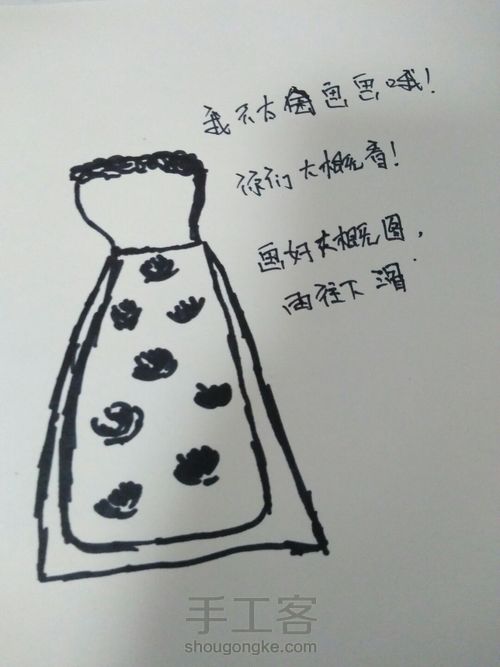 我不太会画画哦！
你们大概看！
画好大概图，
再往下滑
手工客
shougongke.com